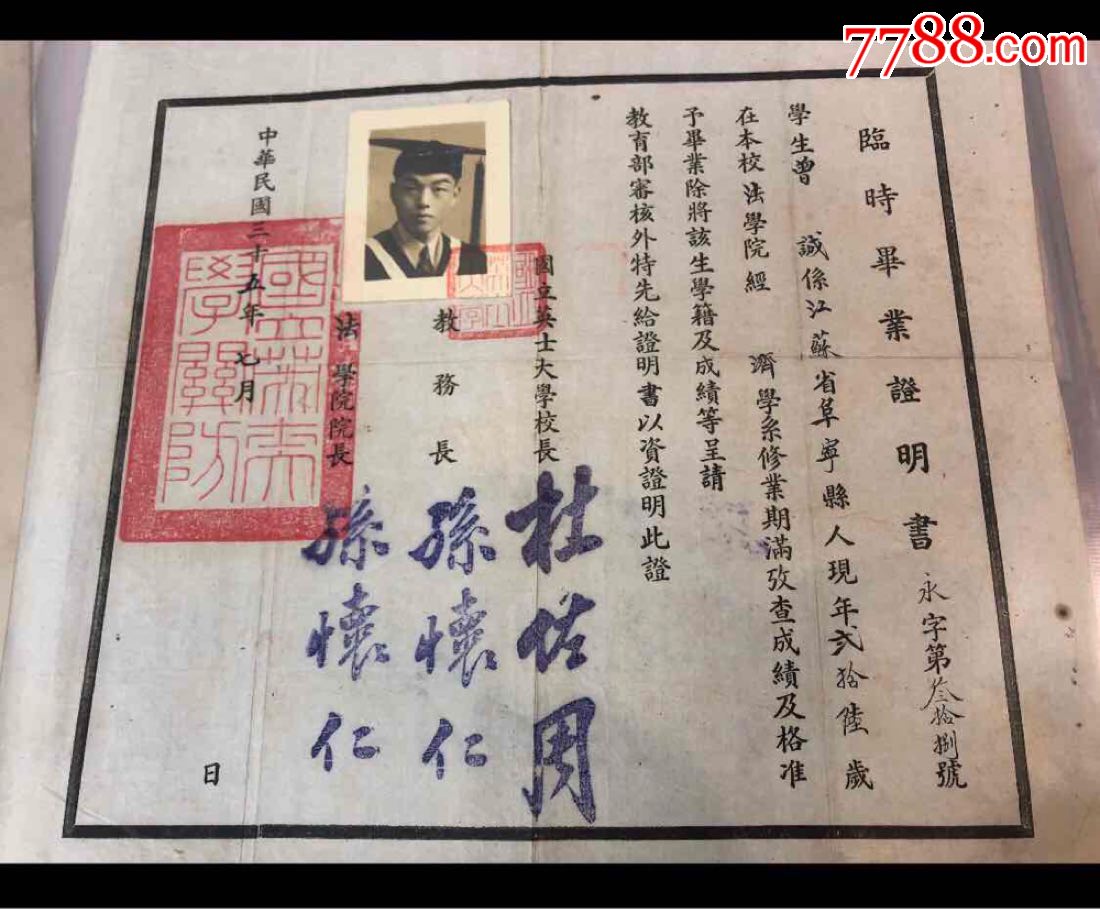 7788.com
臨時畢業證明書
永字第叁拾捌號
學生曾 誠係江蘇省阜寧縣人現年貳拾陸歲
在本校法學院經 濟學系修業期滿攷查成績及格准
予畢業除將該生學籍及成績等呈請
教育部審核外特先給證明書以資證明此證
國立英士大學校長 杜佐周
教務長 孫懷仁
法學院院長 孫懷仁
中華民國三十五年七月 日
國立英士大
學關防